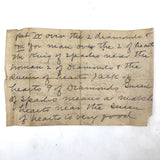 put IX over the 2 diamonds &
you man over the 2 of hearts
the King of Spades near the
woman 2 of Diamonds & the
Queen of hearts Jack of
hearts 9 of Diamonds Queen
of Spades means a
hearts near the Queen
of hearts is very good